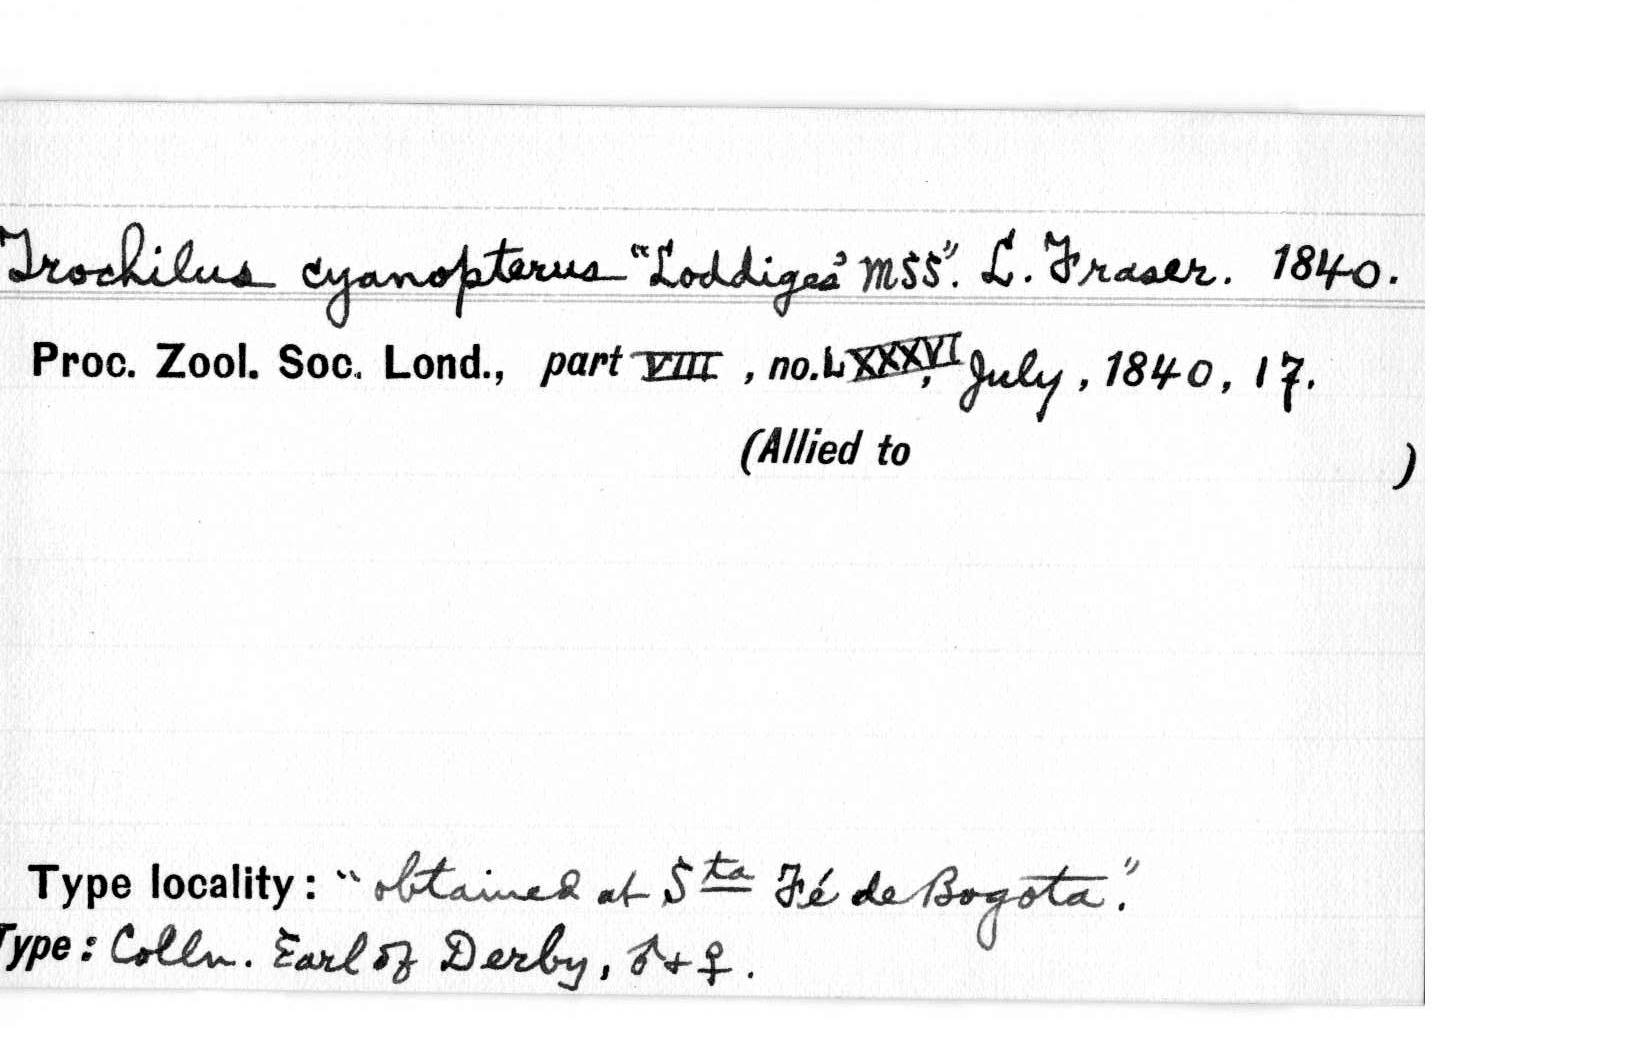 Trochilus cyanopterus "Loddiges' MSS". L. Fraser. 1840.
Proc. Zool. Soc. Lond., part VIII, no. LXXXVI, July, 1840, 17.
(Allied to )
Type locality: "obtained at Sta Fé de Bogota".
Type: Colln. Earl of Derby, ♂ + ♀.